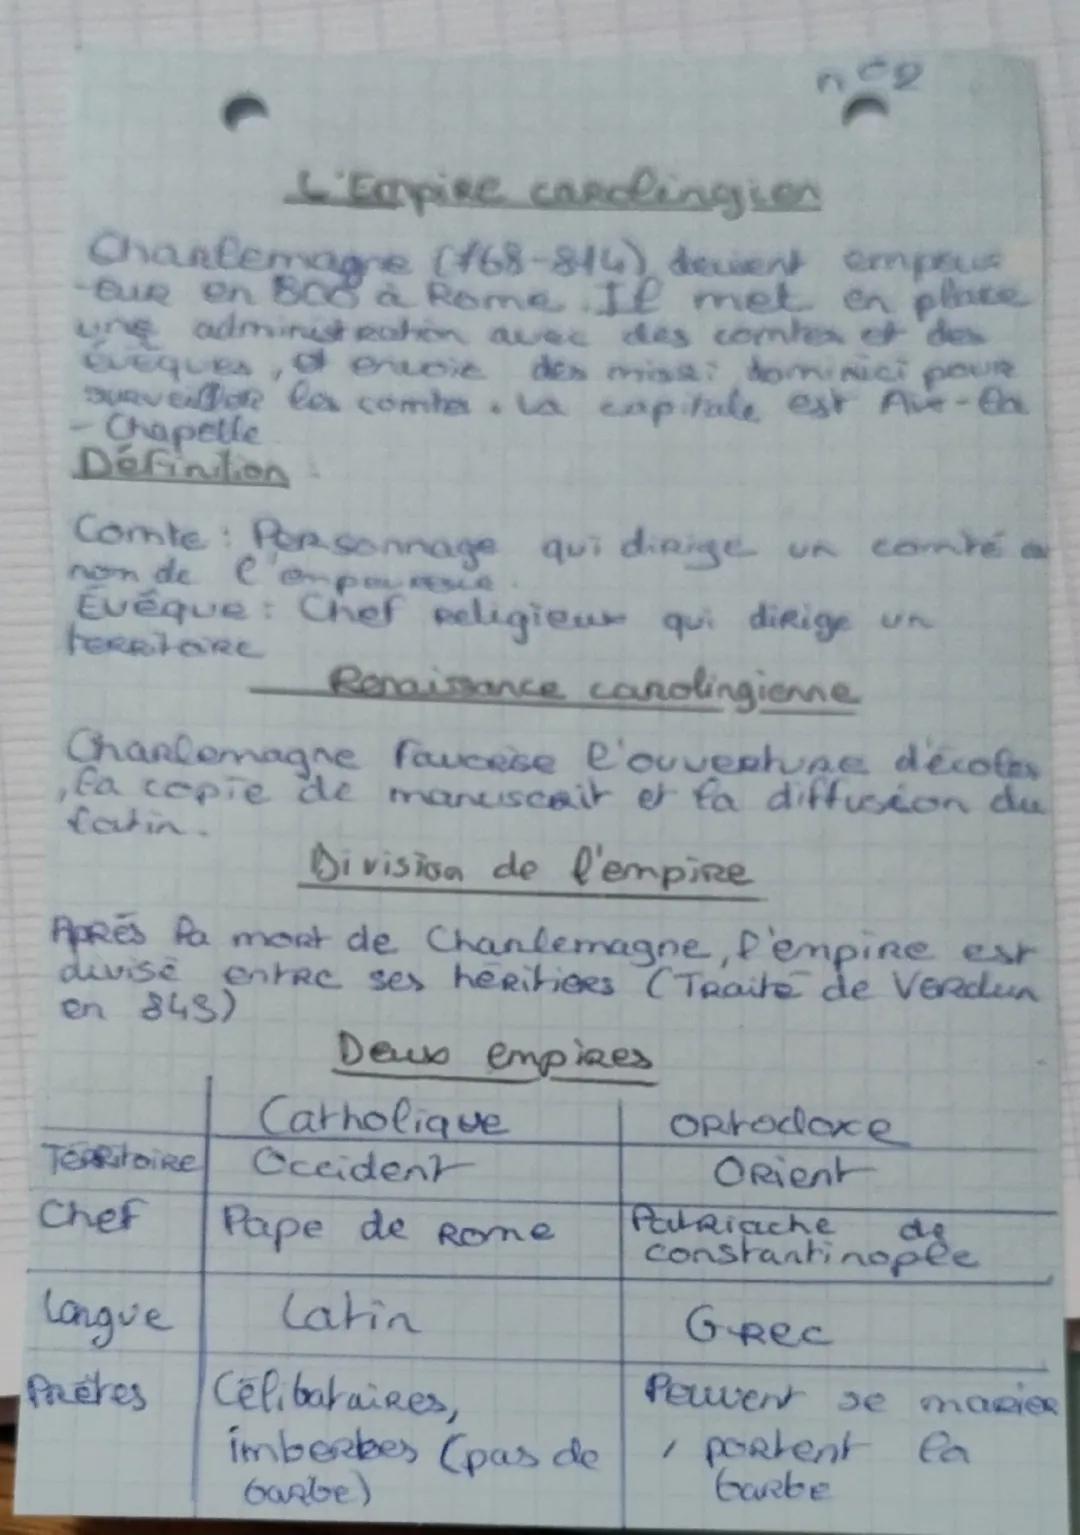 n°2
L'Empire carolingien
Charlemagne (768-814) devient empeur
-eur en 800 à Rome. Il met en place
une administration avec des comtes et des
évêques, et envoie des missi dominici pour
surveiller les comtes. La capitale est Aix-la
-Chapelle
Définition :
Comte : Personnage qui dirige un comté a
nom de l'empereur.
Évêque : Chef religieux qui dirige un
territoire
Renaissance carolingienne
Charlemagne favorise l'ouverture d'écoles
, la copie de manuscrit et la diffusion du
latin.
Division de l'empire
Après la mort de Charlemagne, l'empire est
divisé entre ses héritiers (Traité de Verdun
en 843)
Deux empires
Catholique ortodoxe
Territoire Occident Orient
Chef Pape de Rome Patriache de
constantinople
Langue Latin Grec
Prêtres Célibataires, Peuvent se marier
imberbes (pas de , portent la
barbe) barbe